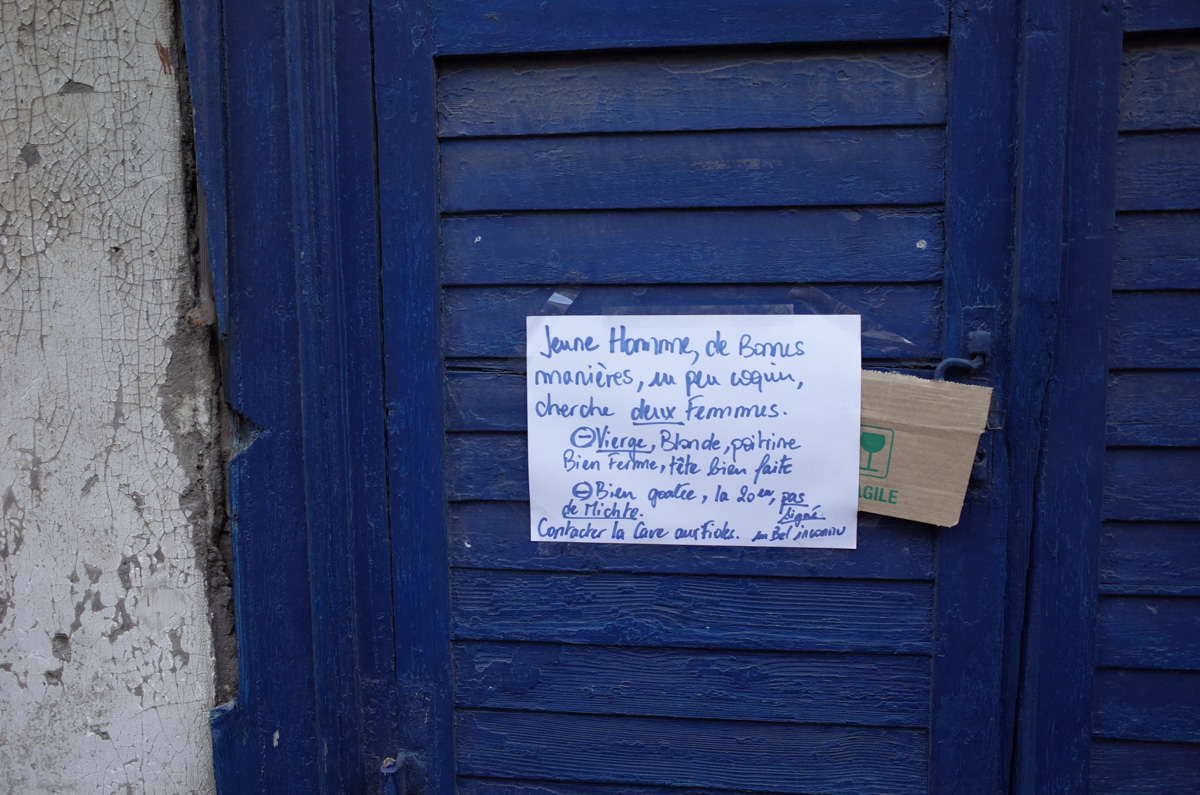 Jeune Homme, de Bonnes
manières, un peu coquin,
cherche deux Femmes.
⊖ Vierge, Blonde, poitrine
Bien Ferme, tête bien faite
⊖ Bien goatee, la 20en, pas
de Michto. signé
Contacter la Cave aux Fioles. un Bel inconnu
AGILE